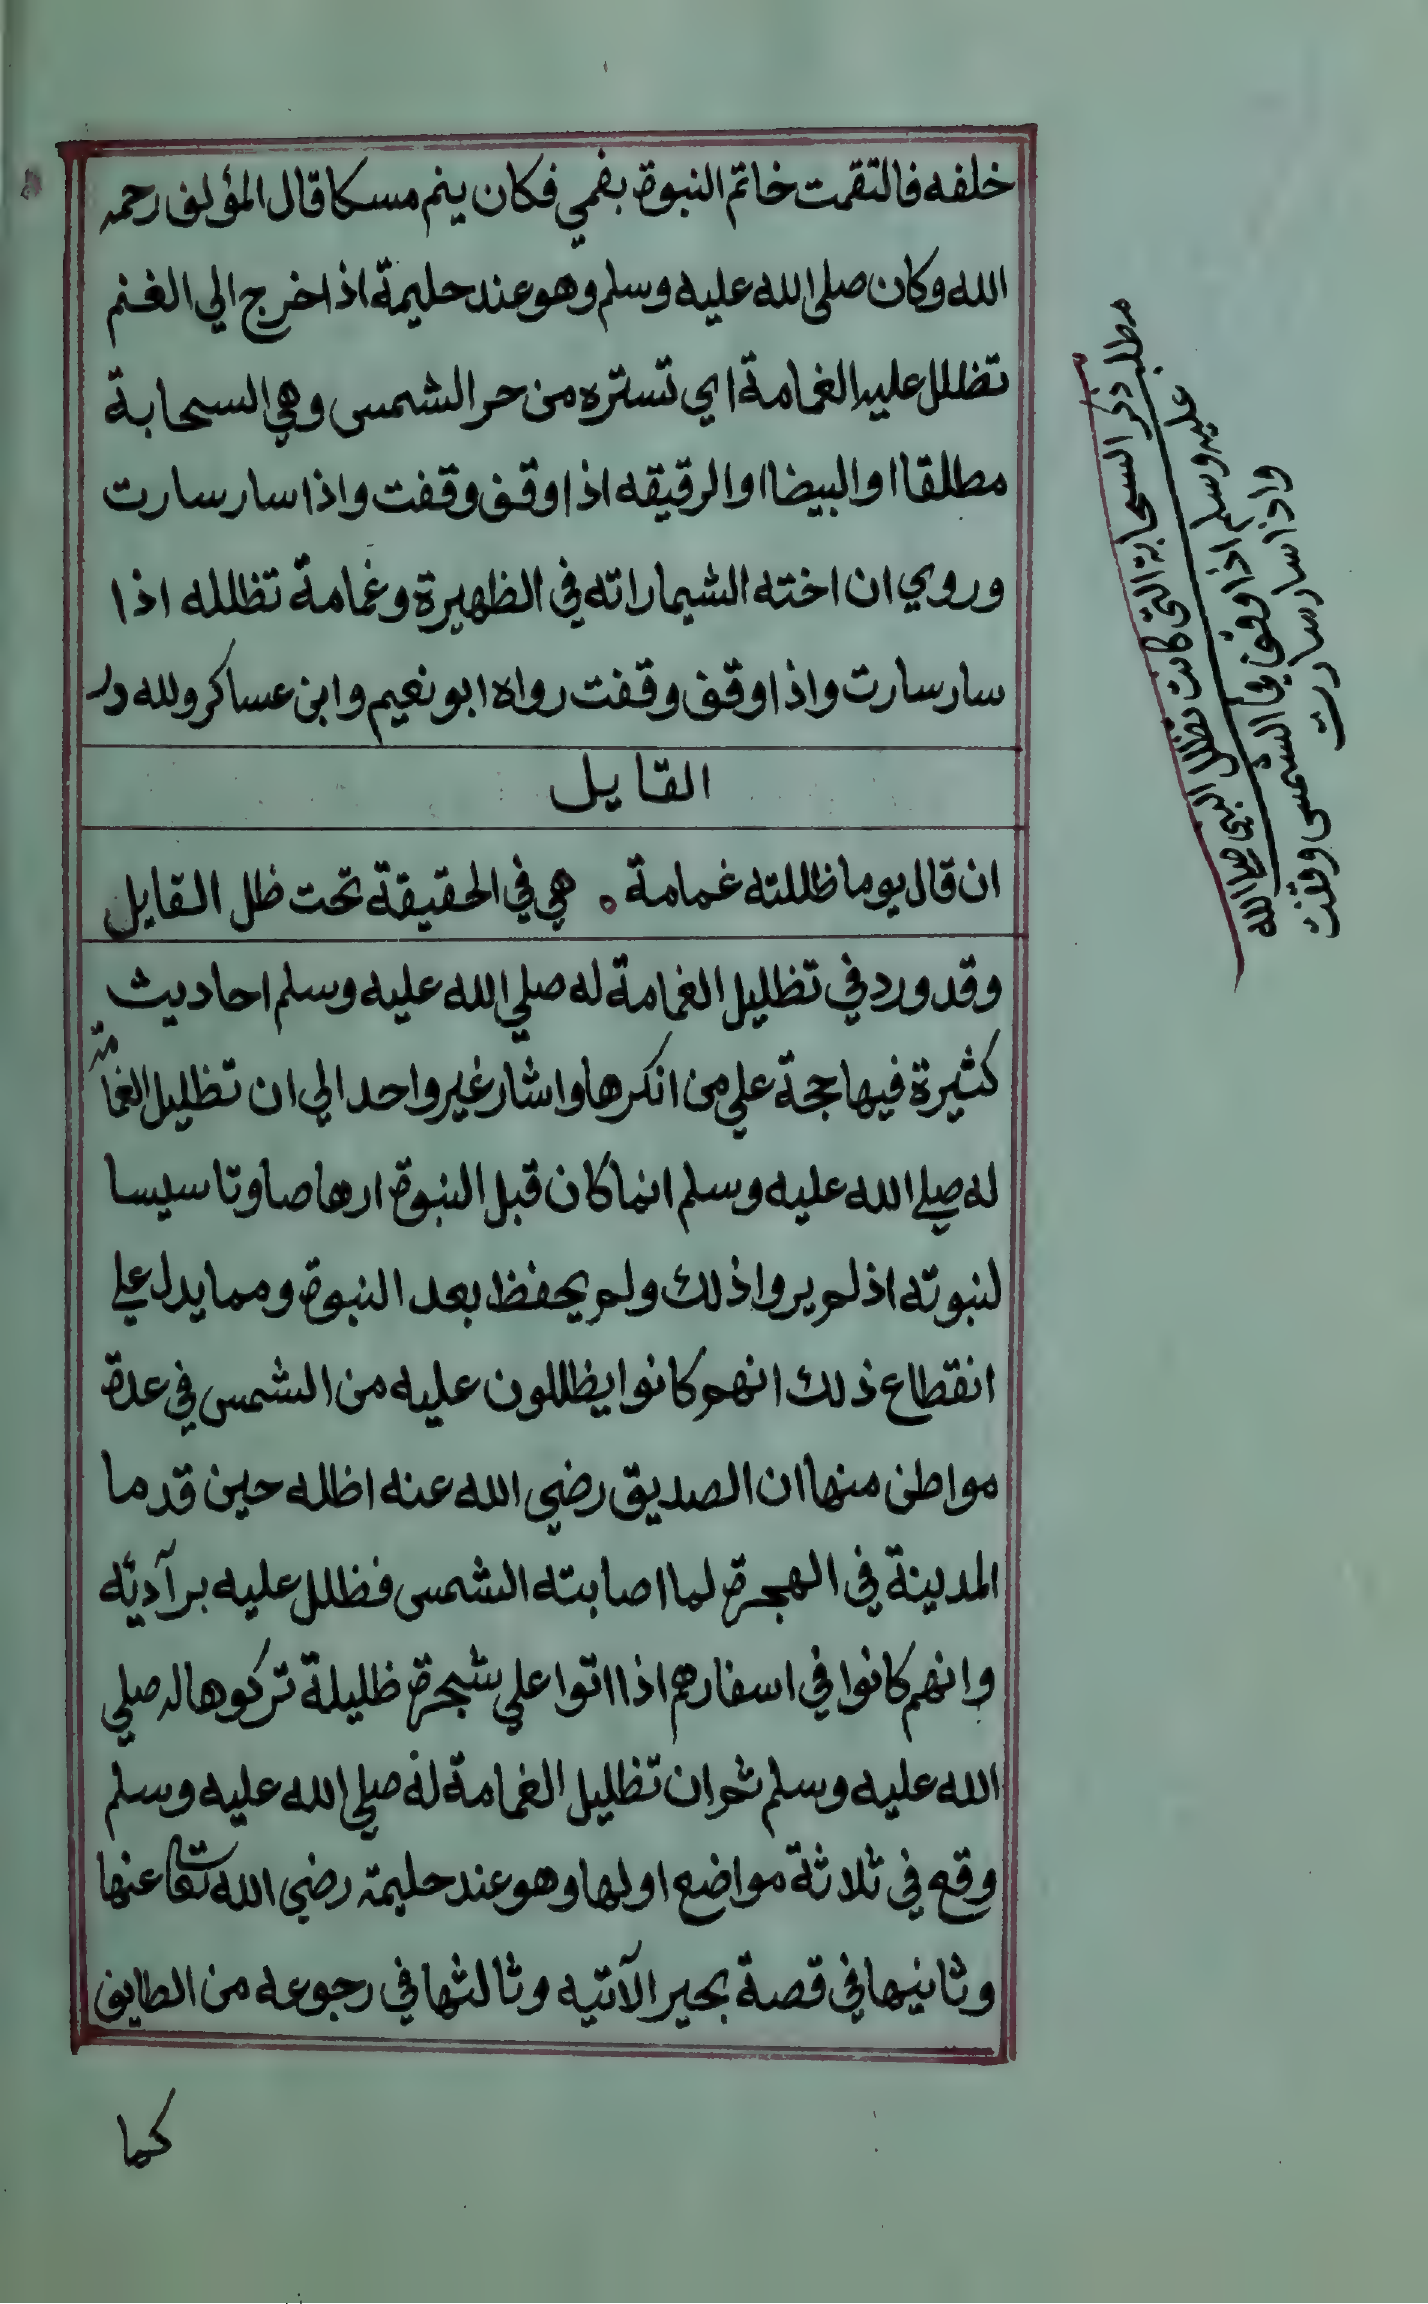 خلفه فالتقمت خاتم النبوة بفمي فكان ينم مسكا قال المؤلف رحمه
الله وكان صلى الله عليه وسلم وهو عند حليمة اذا خرج الي الغنم
تظلل عليه الغمامة اي تستره من حر الشمس وهي السحابة
مطلقا او البيضا او الرقيقه اذا وقف وقفت واذا سار سارت
وروي ان اخته الشيما راته في الظهيرة وغمامة تظلله اذا
سار سارت واذا وقف وقفت رواه ابو نعيم وابن عساكر ولله در
القايل
ان قال يوما ظللته غمامة . هي في الحقيقة تحت ظل القايل
وقد ورد في تظليل الغمامة له صلي الله عليه وسلم احاديث
كثيرة فيها حجة علي من انكرها واشار غير واحد الي ان تظليل الغمامة
له صلي الله عليه وسلم انما كان قبل النبوة ارهاصا وتاسيسا
لنبوته اذ لم يروا ذلك ولم يحفظ بعد النبوة ومما يدل علي
انقطاع ذلك انهم كانوا يظللون عليه من الشمس في عدة
مواطن منها ان الصديق رضي الله عنه اظله حين قدما
المدينة في الهجرة لما اصابته الشمس فظلل عليه برآدئه
وانهم كانوا في اسفارهم اذا اتوا علي شجرة ظليلة تركوها له صلي
الله عليه وسلم ثم ان تظليل الغمامة له صلي الله عليه وسلم
وقع في ثلاثة مواضع اولها وهو عند حليمة رضي الله تعالى عنها
وثانيها في قصة بحيرا الآتيه وثالثها في رجوعه من الطايف
كما
مطلب ذكر السحابة التى كانت تظلل النبي صلى الله
عليه وسلم اذا وقف في الشمس وقفت
واذا سار سارت